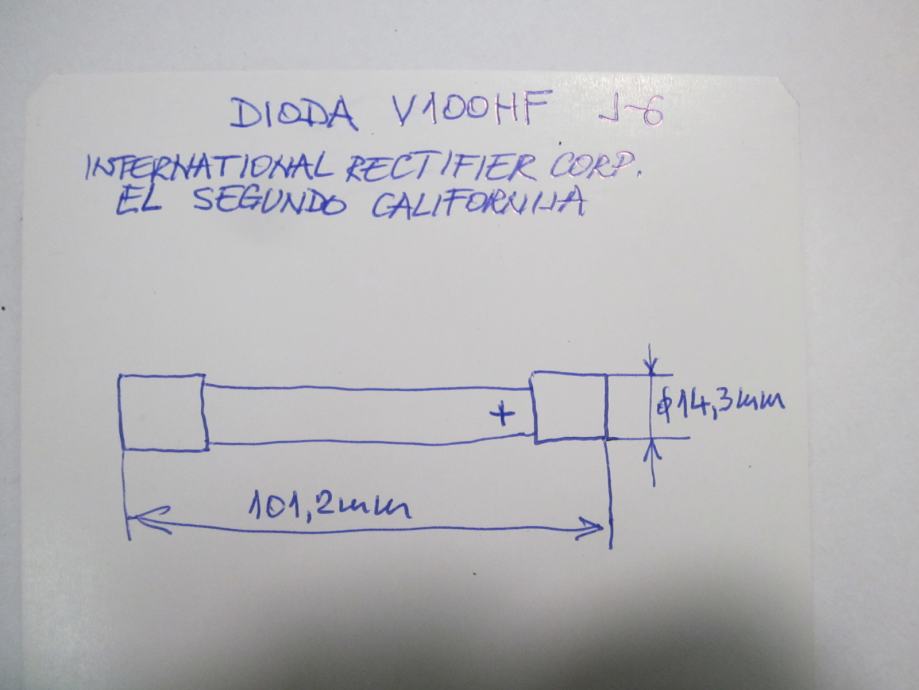 DIODA V100HF J-6
INTERNATIONAL RECTIFIER CORP.
EL SEGUNDO CALIFORNIJA
+
ϕ14,3mm
101,2mm